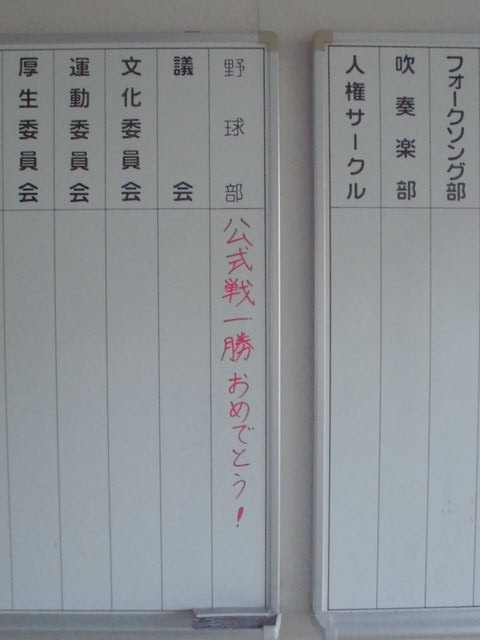 フォークソング部
吹奏楽部
人権サークル
野球部
公式戦一勝おめでとう！
議会
文化委員会
運動委員会
厚生委員会